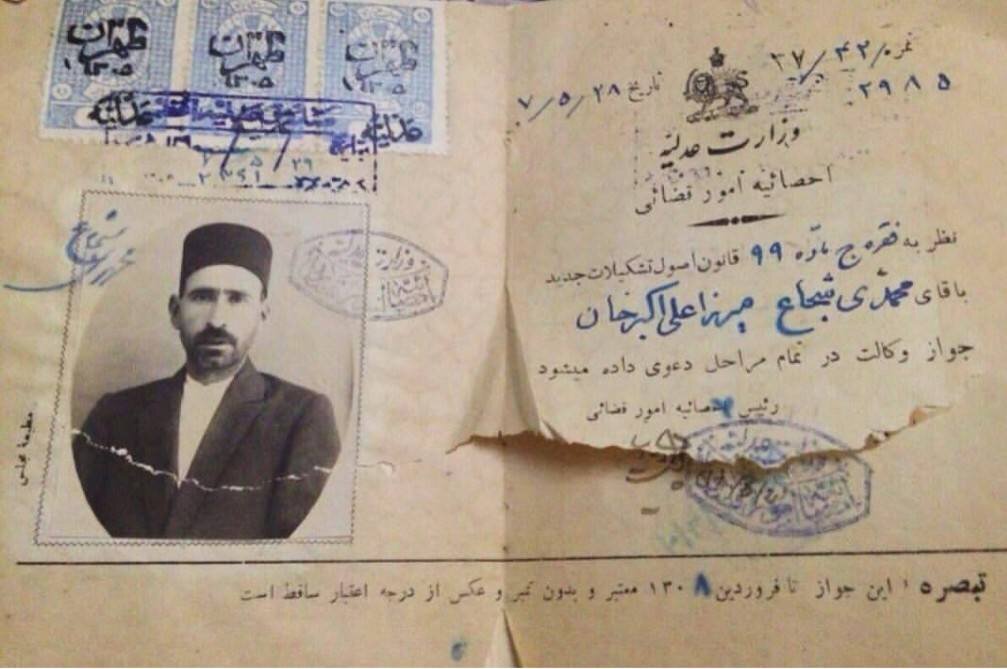 نمره ۳۷/۴۲۰
۲۹۸۵
تاریخ ۷/۵/۲۸
وزارت عدلیه
احصائیه امور قضائی
نظر به فقره ج ماده ۹۹ قانون اصول تشکیلات جدید
باقای محمدی شجاع میرزا علی اکبر خان
جواز وکالت در تمام مراحل دعوی داده میشود
رئیس احصائیه امور قضائی
طهران
۱۳۰۵
طهران
۱۳۰۵
طهران
۱۳۰۵
عدلیه
عدلیه
وزارت عدلیه
مطبعه مجلس
تبصره : این جواز تا فروردین ۱۳۰۸ معتبر و بدون تمبر و عکس از درجه اعتبار ساقط است